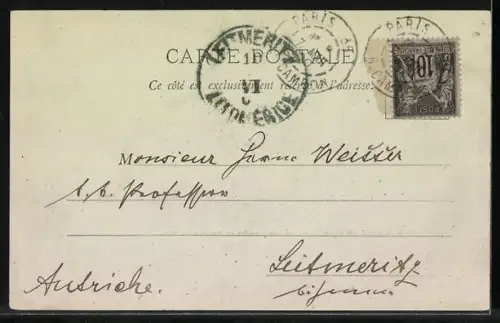 CARTE POSTALE
Ce côté est exclusivement réservé à l'adresse.
PARIS
PARIS
LEITMERITZ
LITOMĚŘICE
10
Monsieur Weisser
k.k. Professor
Leitmeritz
Autriche.